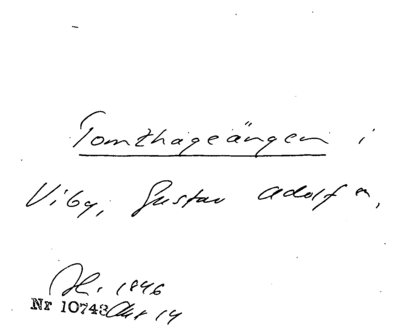 Tomthageängen i
Viby, Gustav Adolf n,
H. 1846
Nr 10743 Akt 14